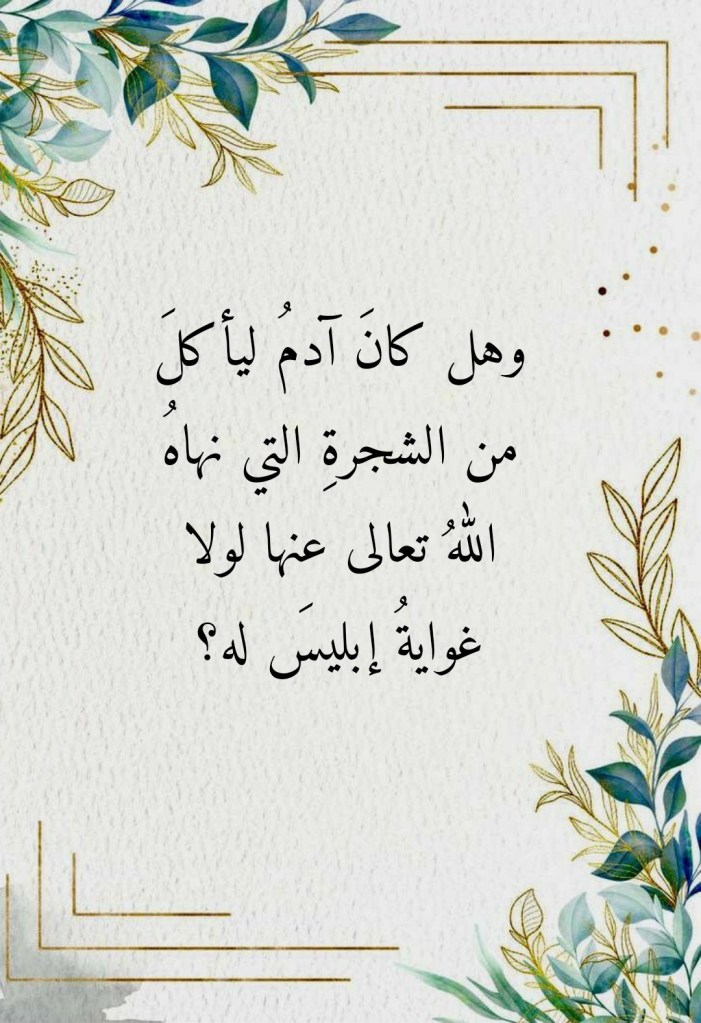 وهل كانَ آدمُ ليأكلَ
من الشجرةِ التي نهاهُ
اللهُ تعالى عنها لولا
غوايةُ إبليسَ له؟